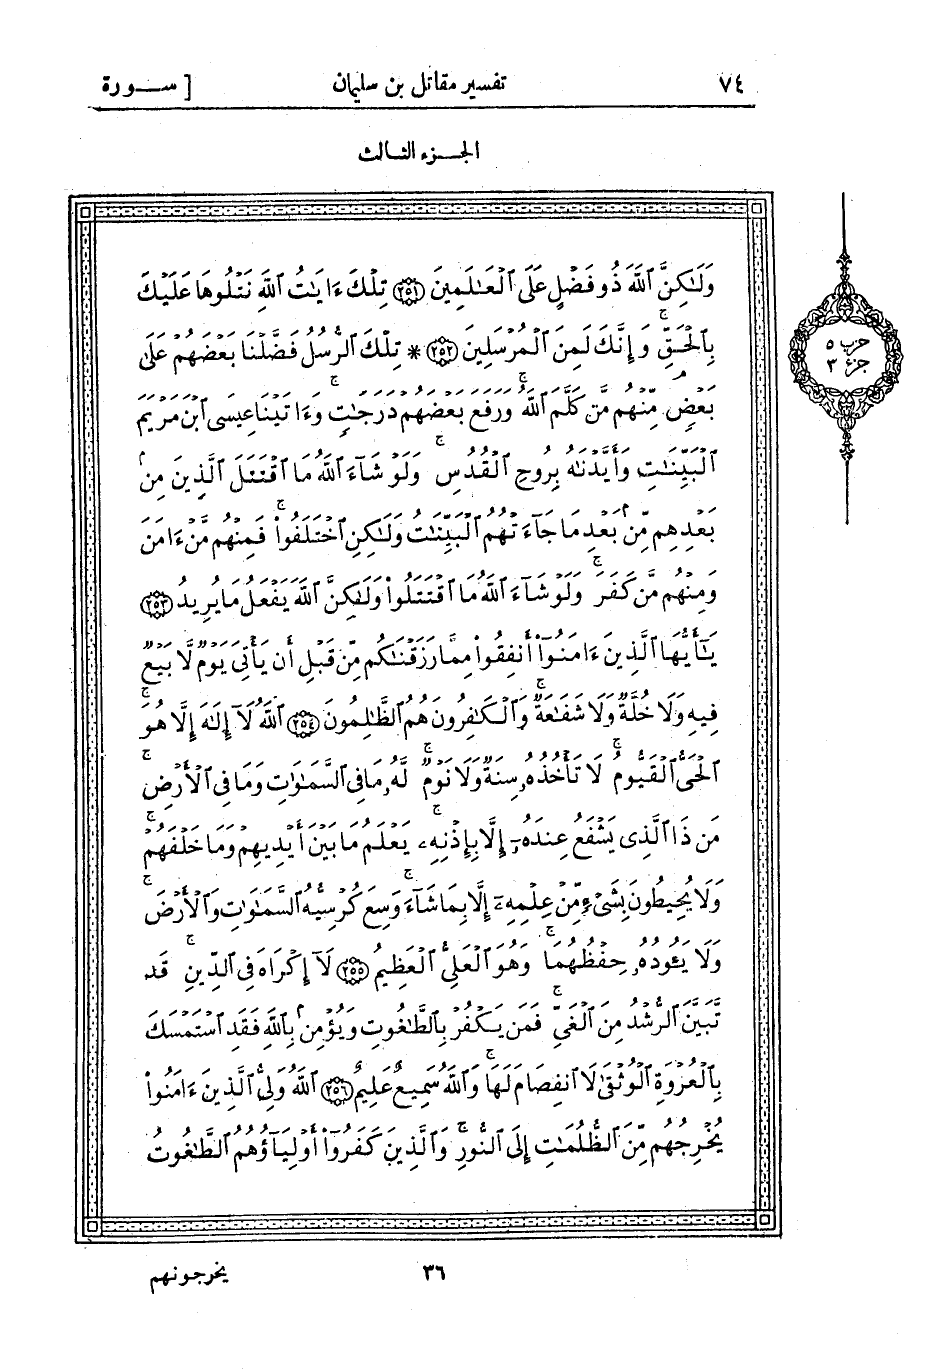 ٧٤ تفسير مقاتل بن سليمان [ ســورة
الجــزء الثـالث
وَلَٰكِنَّ ٱللَّهَ ذُو فَضْلٍ عَلَى ٱلْعَٰلَمِينَ ﴿٢٥١﴾ تِلْكَ ءَايَٰتُ ٱللَّهِ نَتْلُوهَا عَلَيْكَ
بِٱلْحَقِّ ۚ وَإِنَّكَ لَمِنَ ٱلْمُرْسَلِينَ ﴿٢٥٢﴾ * تِلْكَ ٱلرُّسُلُ فَضَّلْنَا بَعْضَهُمْ عَلَىٰ
بَعْضٍ ۘ مِّنْهُم مَّن كَلَّمَ ٱللَّهُ ۖ وَرَفَعَ بَعْضَهُمْ دَرَجَٰتٍ ۚ وَءَاتَيْنَا عِيسَى ٱبْنَ مَرْيَمَ
ٱلْبَيِّنَٰتِ وَأَيَّدْنَٰهُ بِرُوحِ ٱلْقُدُسِ ۗ وَلَوْ شَآءَ ٱللَّهُ مَا ٱقْتَتَلَ ٱلَّذِينَ مِنۢ
بَعْدِهِم مِّنۢ بَعْدِ مَا جَآءَتْهُمُ ٱلْبَيِّنَٰتُ وَلَٰكِنِ ٱخْتَلَفُوا۟ ۚ فَمِنْهُم مَّنْ ءَامَنَ
وَمِنْهُم مَّن كَفَرَ ۚ وَلَوْ شَآءَ ٱللَّهُ مَا ٱقْتَتَلُوا۟ وَلَٰكِنَّ ٱللَّهَ يَفْعَلُ مَا يُرِيدُ ﴿٢٥٣﴾
يَٰٓأَيُّهَا ٱلَّذِينَ ءَامَنُوٓا۟ أَنفِقُوا۟ مِمَّا رَزَقْنَٰكُم مِّن قَبْلِ أَن يَأْتِىَ يَوْمٌ لَّا بَيْعٌ
فِيهِ وَلَا خُلَّةٌ وَلَا شَفَٰعَةٌ ۗ وَٱلْكَٰفِرُونَ هُمُ ٱلظَّٰلِمُونَ ﴿٢٥٤﴾ ٱللَّهُ لَآ إِلَٰهَ إِلَّا هُوَ
ٱلْحَىُّ ٱلْقَيُّومُ ۚ لَا تَأْخُذُهُۥ سِنَةٌ وَلَا نَوْمٌ ۚ لَّهُۥ مَا فِى ٱلسَّمَٰوَٰتِ وَمَا فِى ٱلْأَرْضِ ۗ
مَن ذَا ٱلَّذِى يَشْفَعُ عِندَهُۥٓ إِلَّا بِإِذْنِهِۦ ۚ يَعْلَمُ مَا بَيْنَ أَيْدِيهِمْ وَمَا خَلْفَهُمْ ۖ
وَلَا يُحِيطُونَ بِشَىْءٍ مِّنْ عِلْمِهِۦٓ إِلَّا بِمَا شَآءَ ۚ وَسِعَ كُرْسِيُّهُ ٱلسَّمَٰوَٰتِ وَٱلْأَرْضَ ۖ
وَلَا يَـُٔودُهُۥ حِفْظُهُمَا ۚ وَهُوَ ٱلْعَلِىُّ ٱلْعَظِيمُ ﴿٢٥٥﴾ لَآ إِكْرَاهَ فِى ٱلدِّينِ ۖ قَد
تَّبَيَّنَ ٱلرُّشْدُ مِنَ ٱلْغَىِّ ۚ فَمَن يَكْفُرْ بِٱلطَّٰغُوتِ وَيُؤْمِنۢ بِٱللَّهِ فَقَدِ ٱسْتَمْسَكَ
بِٱلْعُرْوَةِ ٱلْوُثْقَىٰ لَا ٱنفِصَامَ لَهَا ۗ وَٱللَّهُ سَمِيعٌ عَلِيمٌ ﴿٢٥٦﴾ ٱللَّهُ وَلِىُّ ٱلَّذِينَ ءَامَنُوا۟
يُخْرِجُهُم مِّنَ ٱلظُّلُمَٰتِ إِلَى ٱلنُّورِ ۖ وَٱلَّذِينَ كَفَرُوٓا۟ أَوْلِيَآؤُهُمُ ٱلطَّٰغُوتُ
حزب ٥
جزء ٣
٣٦
يخرجونهم